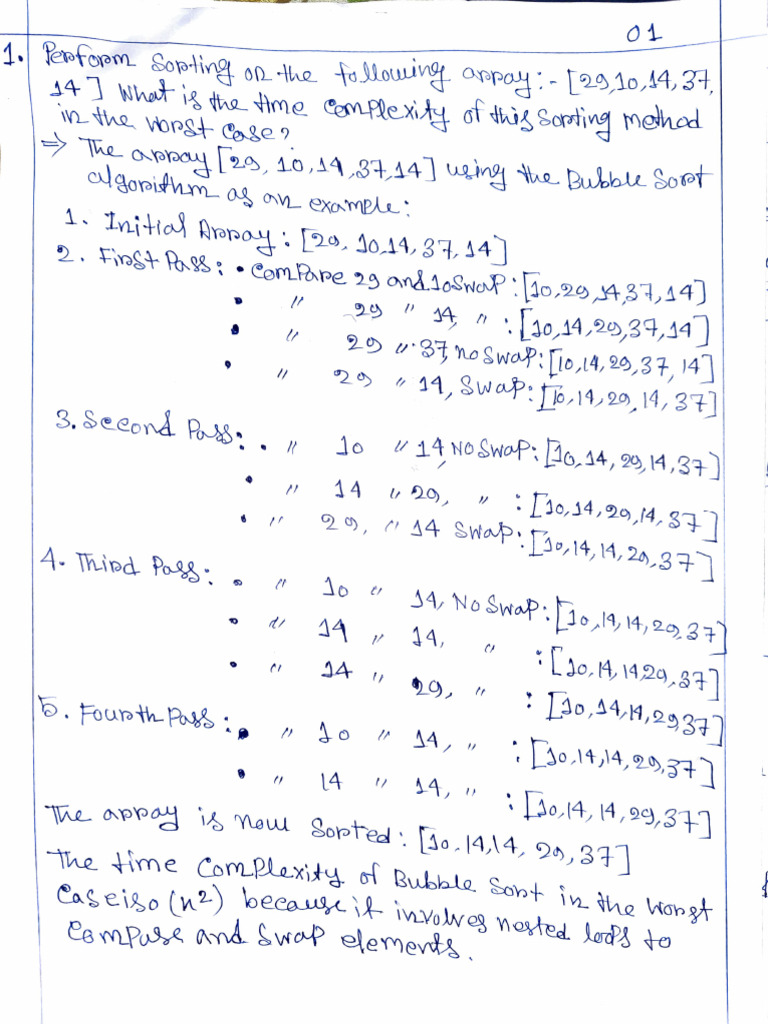 01
1. Perform Sorting on the following array:- [29,10,14,37,
14] What is the time complexity of this Sorting method
in the worst case?
⇒ The array [29, 10,14,37,14] using the Bubble Sort
algorithm as an example:
1. Initial Array: [29, 10,14, 37, 14]
2. First Pass: • Compare 29 and 10 Swap: [10,29,14,37,14]
• " 29 " 14, " : [10,14,29,37,14]
• " 29 " 37, no Swap: [10,14,29,37,14]
• " 29 " 14, Swap: [10,14,29,14,37]
3. Second Pass: • " 10 " 14, No Swap: [10,14,29,14,37]
• " 14 " 29, " : [10,14,29,14,37]
• " 29, " 14 Swap: [10,14,14,29,37]
4. Third Pass: • " 10 " 14, No Swap: [10,14,14,29,37]
• " 14 " 14, " : [10,14,14,29,37]
• " 14 " 29, " : [10,14,14,29,37]
5. Fourth Pass: • " 10 " 14, " : [10,14,14,29,37]
• " 14 " 14, " : [10,14,14,29,37]
The array is now Sorted: [10,14,14, 29,37]
The time Complexity of Bubble Sort in the Worst
Case is o(n2) because it involves nested loops to
Compase and Swap elements.